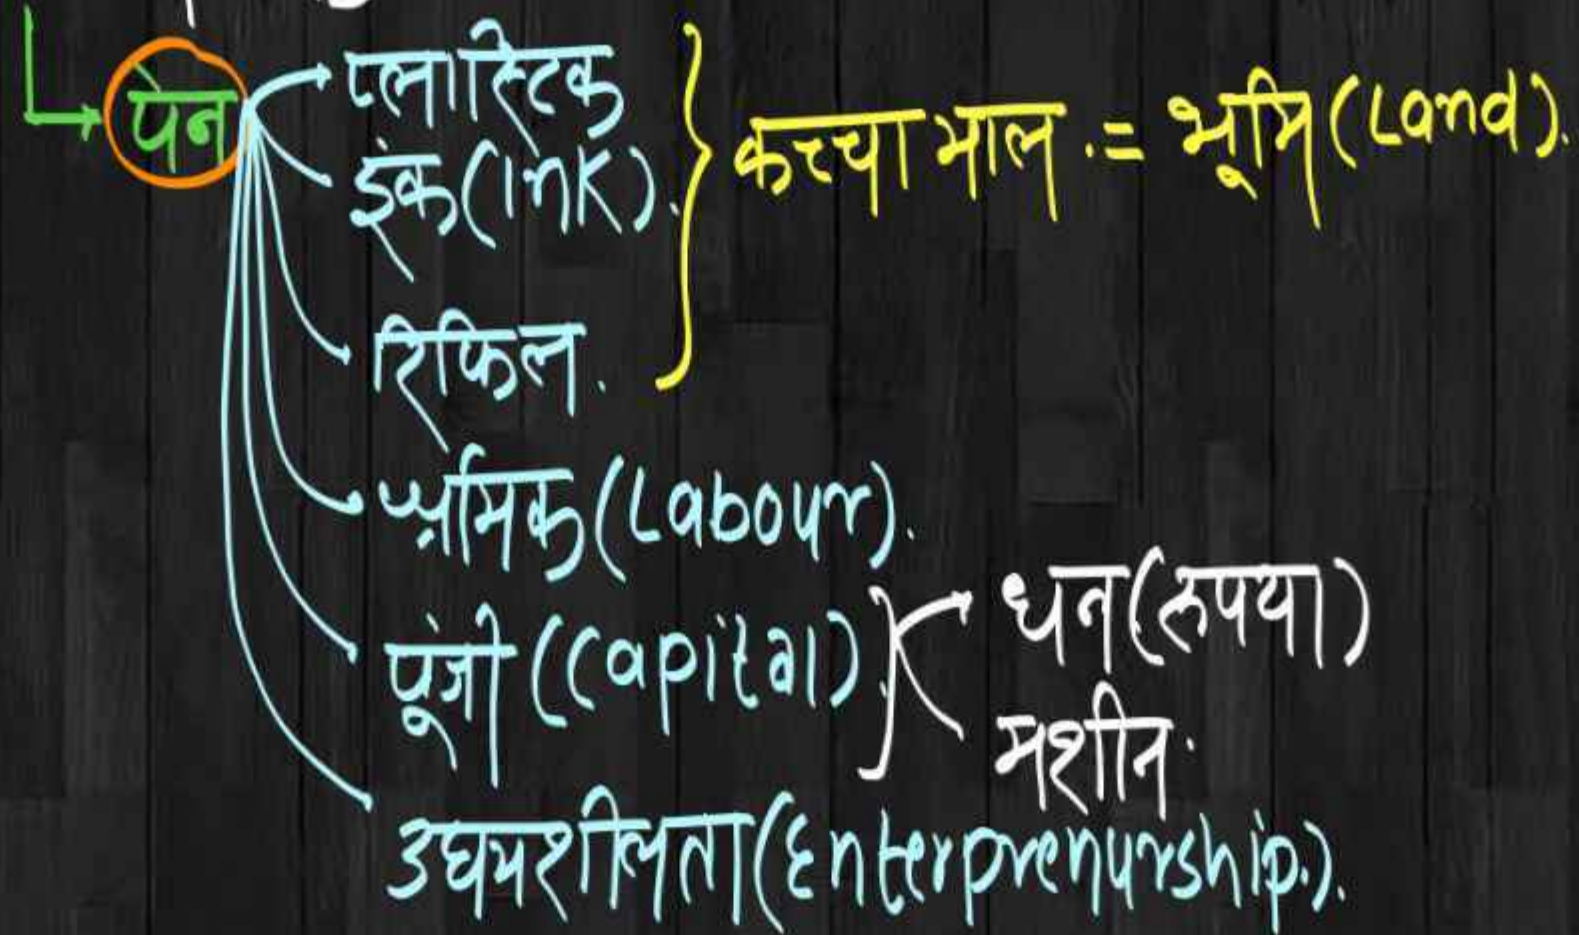 पेन
प्लास्टिक
इंक (Ink).
रिफिल.
कच्चा माल := भूमि (Land).
श्रमिक (Labour).
पूंजी (Capital).
धन (रुपया)
मशीन.
उघमशीलता (Enterprenurship.).